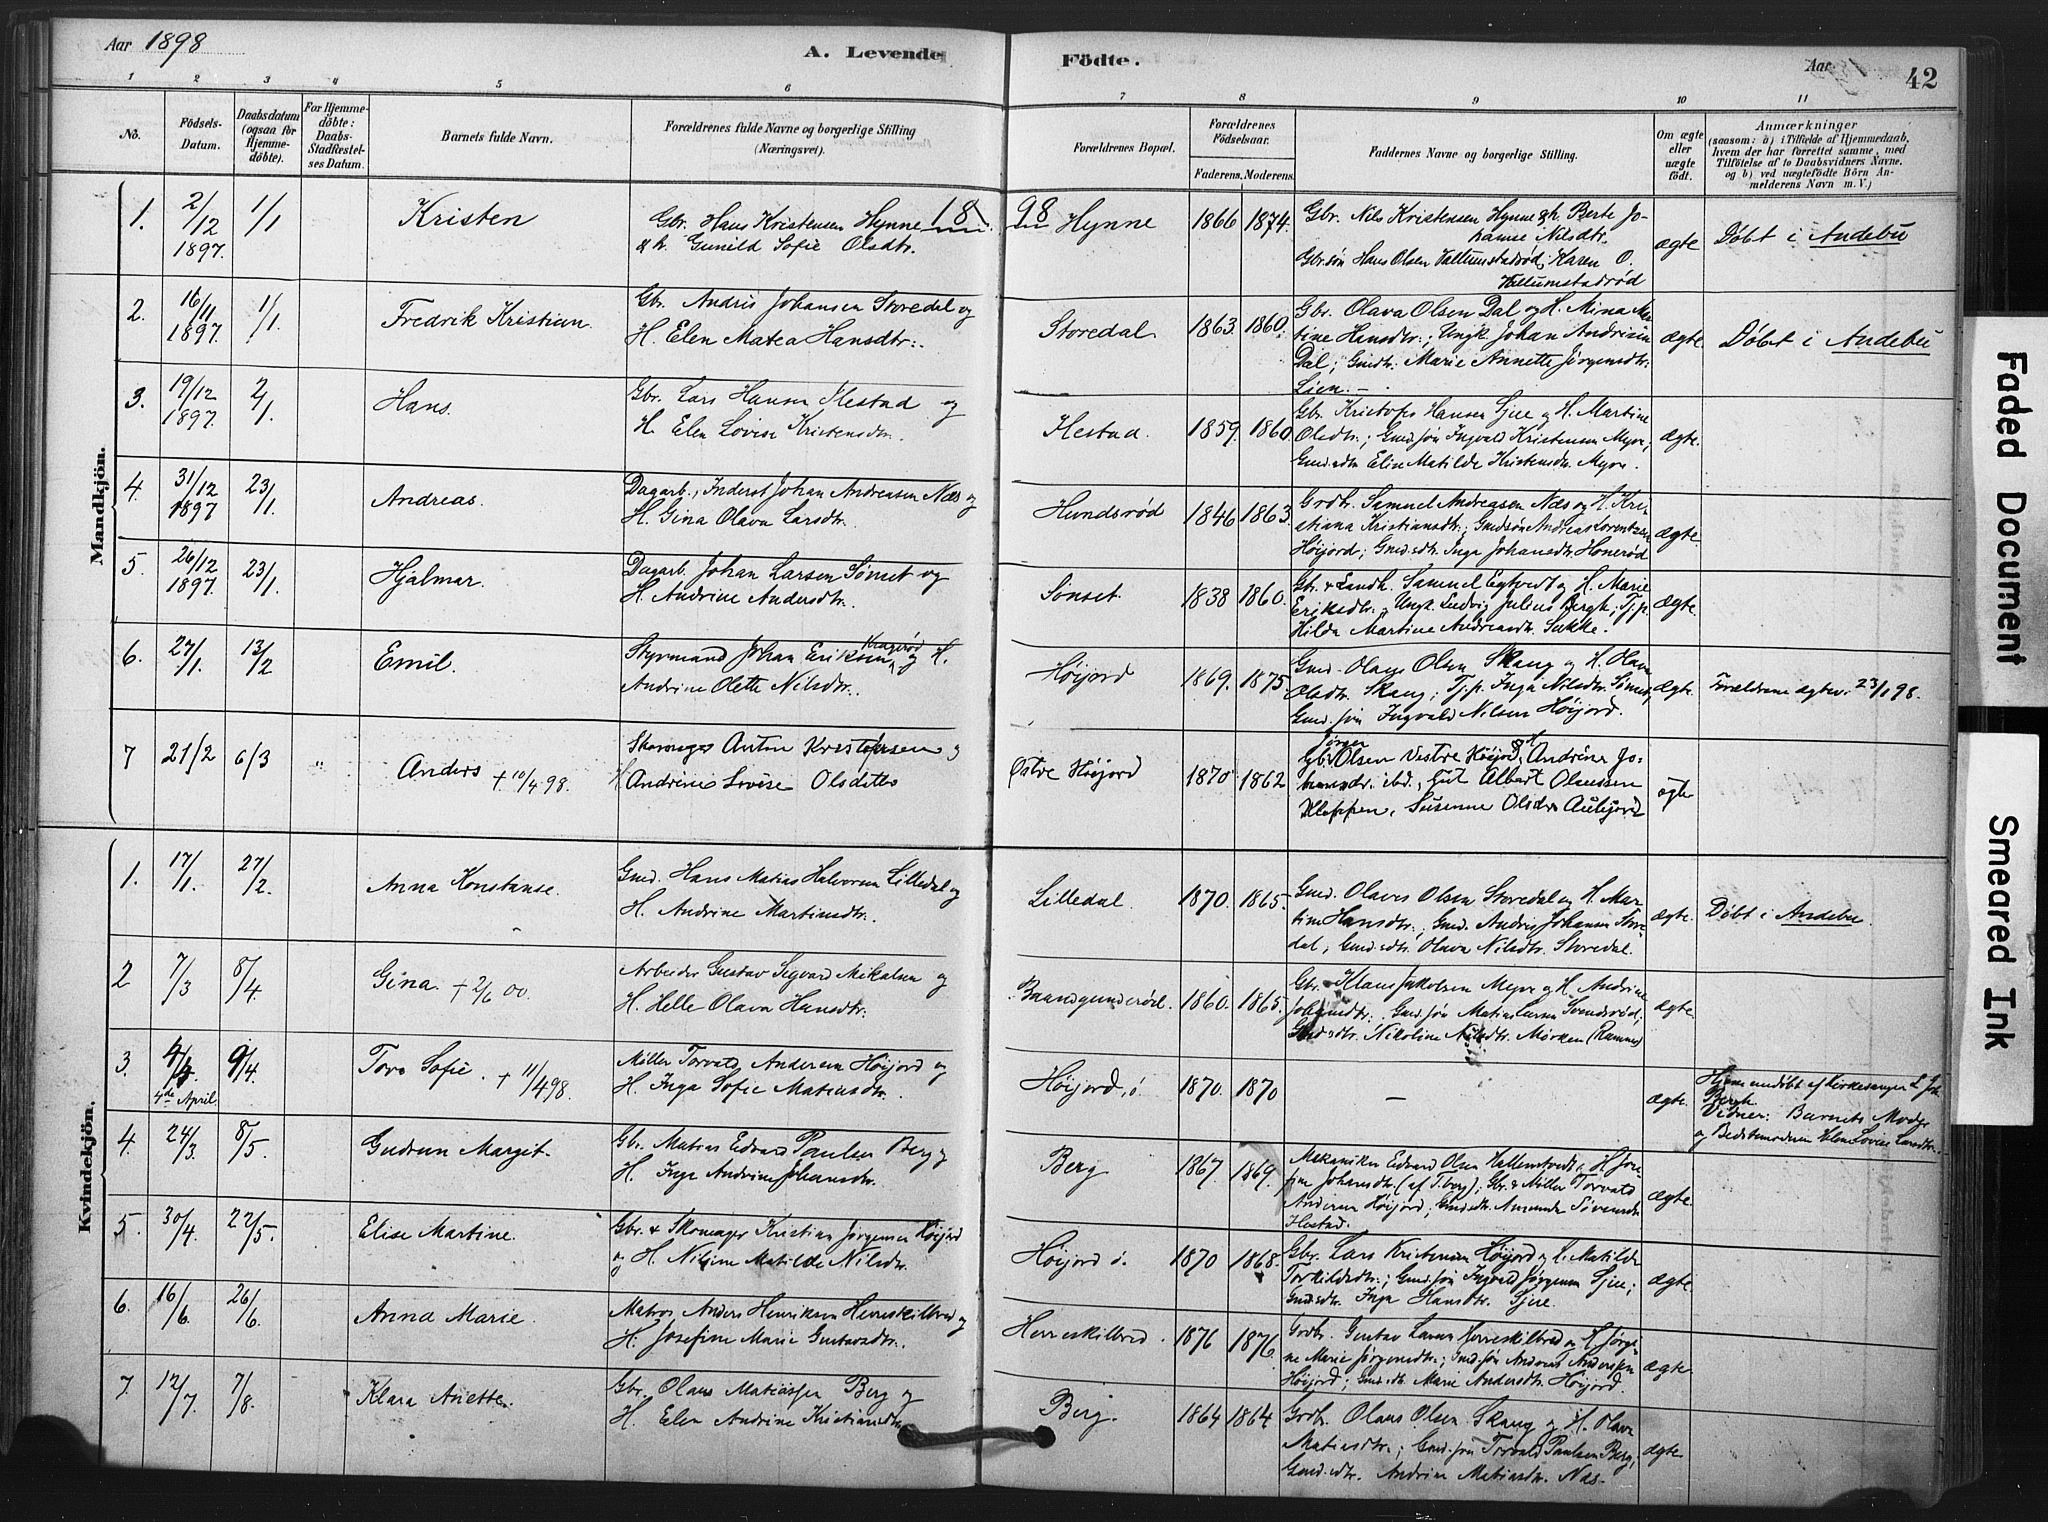 Aar 1898
A. Levende
Födte.
Aar
42
1 2 3 4 5 6 7 8 9 10 11
No.
Födsels-
Datum.
Daabsdatum
(ogsaa for
Hjemme-
döbte).
For Hjemme-
döbte:
Daabs-
Stadfæstel-
ses Datum.
Barnets fulde Navn.
Forældrenes fulde Navne og borgerlige Stilling
(Næringsvei).
Forældrenes Bopæl.
Forældrenes
Födselsaar.
Faderens. Moderens.
Faddernes Navne og borgerlige Stilling.
Om ægte
eller
uægte
födt.
Anmærkninger
(saasom: a) i Tilfælde af Hjemmedaab,
hvem der har forrettet samme, med
Tilföielse af to Daabsvidners Navne.
og b) ved uægtefödte Börn An-
melderens Navn m. V.)
Mandkjön.
1. 2/12 1897 1/1 Kristen
Gbr. Hans Kristensen Hynne 18
& h. Gunild Sofie Olsdtr.
98 Hynne 1866 1874.
Gbr. Nils Kristensen Hynne & h. Berte Jo-
hanne Nilsdtr.
Gbr.søn Hans Olsen Vallumstadrød; Karen O.
Vallumstadrød
ægte Døbt i Andebu
2. 16/11 1897. 1/1. Fredrik Kristian.
Gbr. Andris Johansen Storedal og
H. Elen Matea Hansdtr.
Storedal 1863. 1860.
Gbr. Olava Olsen Dal og H. Mina Ma-
tine Hansdtr.; Ungk. Johan Andrisen
Dal; Gmdtr. Marie Annette Jørgensdtr.
Lien.
ægte. Døbt i Andebu
3. 19/12 1897. 2/1. Hans.
Gbr. Lars Hansen Hestad og
H. Elen Lovise Kristensdtr.
Hestad. 1859. 1860
Gbr. Kristofer Hansen Gjue og H. Martine
Olsdtr.; Gmd.søn Ingvald Kristensen Myre;
Gmd.sdtr. Elise Matilde Kristensdtr. Myre.
ægte.
4. 31/12 1897 23/1. Andreas.
Dagarb., Inderst Johan Andreasen Næs og
H. Gina Olava Larsdtr.
Hundsrød 1846 1863.
Grdbr. Samuel Andreasen Næs og H. Kri-
stiana Kristiansdtr.; Gmdsøn Andreas Lorentzen
Høijord; Gmd.sdtr. Inga Johansdtr. Honerød
ægte.
5. 26/12 1897. 23/1. Hjalmar.
Dagarb. Johan Larsen Sønset og
H. Andrine Andersdtr.
Sønset. 1838 1860.
Gbr. & Landh. Samuel Egtvedt og H. Marie
Eriksdtr.; Ungk. Ludvig Julius Bergh; Tj.p.
Hilda Martine Andreasdtr. Sukke.
ægte.
6. 27/1. 13/2 Emil.
Styrmand Johan Eriksen Kragerød og H.
Andrine Olette Nilsdtr.
Høijord 1869. 1875.
Gmd. Olaus Olsen Skaug og H. Olava
Olsdtr. Skaug; Tj.p. Inga Nilsdtr. Sønset;
Gmd.søn Ingvald Nilsen Høijord.
ægte. Forældrene ægtev. 23/1 98.
7 21/2 6/3 " Anders + 10/4 98.
Skomager Anton Kristofersen og
H Andrine Lovise Olsdatter
Østre Høijord 1870 1862
Gbr. Jørgen Olsen Vestre Høijord og H Andrine Jo-
hannesdr. ibd., Gut Albert Olaussen
Kleppen. Susanne Olsdr Aulijord
ægte
Kvindekjön.
1. 17/1. 27/2. Anna Konstanse.
Gmd. Hans Matias Halvorsen Lilledal og
H. Andrine Martinsdtr.
Lilledal. 1870. 1865.
Gmd. Olaves Olsen Storedal og H. Mar-
tine Hansdtr.; Gmd. Andris Johansen Store-
dal; Gmd.sdtr. Olava Nilsdtr. Storedal.
ægte. Døbt i Andebu.
2 7/3 8/4. Gina. + 2/6 00.
Arbeider Gustav Segvard Mikalsen og
H. Helle Olava Hansdtr.
Baandgunderød. 1860. 1865.
Gbr. Klaus Jakobsen Myre og H. Andrine
Johansdtr.; Gmd.søn Matias Larsen Svendsrød;
Gmdsdtr. Nikoline Nilsdtr. Mørken (Ramnes)
ægte.
3. 4/4. 4de April. 9/4. Tora Sofie. + 11/4 98.
Møller Torvald Andersen Høijord og
H. Inga Sofie Matiasdtr.
Høijord, ø 1870. 1870 –
ægte. Hjemmedøbt af Kirkesanger L. Joh.
Bergh
Vidner: Barnets Moder
og Bedstemoderen Elen Lovise Larsdtr.
4. 24/3. 8/5. Gudrun Margit
Gbr. Matias Edvard Paulsen Berg og
H. Inga Andrine Johansdtr.
Berg 1867. 1869.
Mekaniker Edvard Olsen Hallenstvedt og H Jose-
fine Johansdtr. (af T.berg); Gbr. & Møller Torvald
Andersen Høijord; Gmdsdtr. Amunda Sørensdtr.
Hestad.
ægte
5. 30/4. 22/5. Elise Martine.
Gbr. & Skomager Kristian Jørgensen Høijord
og H. Niline Matilde Nilsdtr.
Høijord ø. 1870 1868.
Gbr. Lars Kristensen Høijord og H. Matilde
Torkildsdtr.; Gmd.søn Ingvald Jørgensen Gjue;
Gmdsdtr. Inga Hansdtr. Gjue.
ægte
6. 16/6. 26/6. Anna Marie.
Matros Anders Henriksen Herreskilbred og
H. Josefine Marie Gustavsdtr.
Herreskilbred. 1876 1876.
Grdbr. Gustav Larsen Herreskilbred og H Jørgi-
ne Marie Jørgensdtr.; Gmd.søn Andreas Andersen
Høijord; Gmd.sdtr. Marie Andersdtr. Høijord.
ægte
7. 12/7. 7/8. Klara Anette.
Gbr. Olaus Matiassen Berg og
H. Elen Andrine Kristiansdtr.
Berg. 1864 1864
Grdbr. Olaus Olsen Skaug og H. Olava
Matiasdtr.; Gmd.søn Torvald Paulsen Berg;
Gmd.sdtr. Andrine Matiasdtr. Næs.
ægte
Faded Document
Smeared Ink